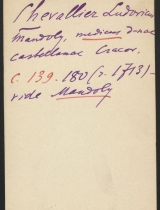 Chevallier Ludovicus
Mandoly, medicus d-nae
castellanae Cracov.
C. 139. 180 (r. 1713) -
vide Mandoly